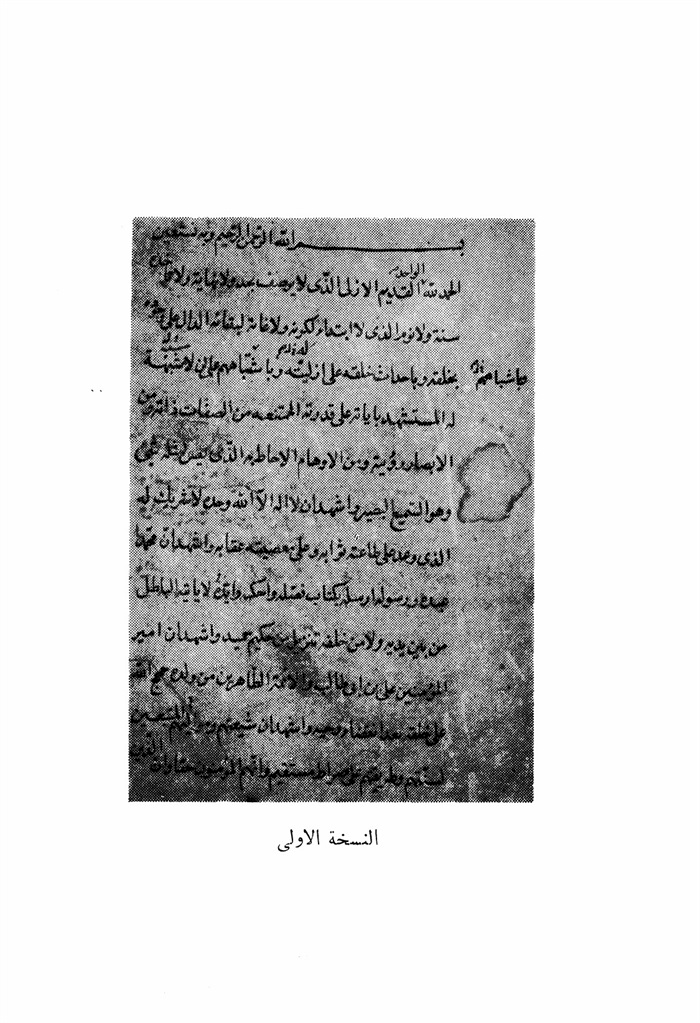 بسم الله الرحمن الرحيم وبه نستعين
الواحد
الحمد لله القديم الازلى الذى لا يوصف بحد ولا نهاية ولا
سنة ولا نوم الذى لا ابتداء لكونه ولا غاية لبقائه الدال على
بخلقه وباحداث خلقه على ازليته وباشتباههم على ان لا مشبهة
وباشباههم
له المستشهد باياته على قدرته الممتنعة من الصفات ذاته ومن
الابصار رؤيته ومن الاوهام الاحاطة به الذى ليس كمثله شئ
وهو السميع البصير واشهد ان لا اله الا الله وحده لا شريك له
الذى وعد على طاعته ثوابه وعلى معصيته عقابه واشهد ان محمدا
عبده ورسوله ارسله بكتاب فصله واحكمه لا ياتيه الباطل
من بين يديه ولا من خلفه تنزيل من حكيم حميد واشهد ان امير
المؤمنين على بن ابى طالب والائمة الطاهرين من ولده حجج الله
على خلقه بعد واشهد ان شيعتهم المتبعين
لسنتهم وطريقتهم على صراط مستقيم وانهم المؤمنون حقا وان الذين
النسخة الاولى